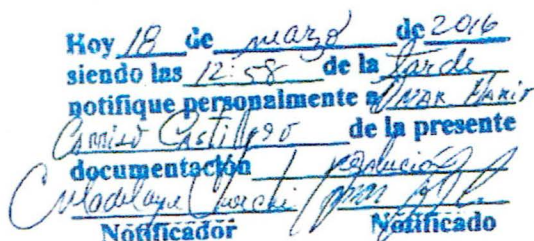 Hoy 18 de marzo de 2016
siendo las 12:58 de la tarde
notifique personalmente a Omar Mario
Camilo Castillero de la presente
documentación resolución
Notificador Notificado